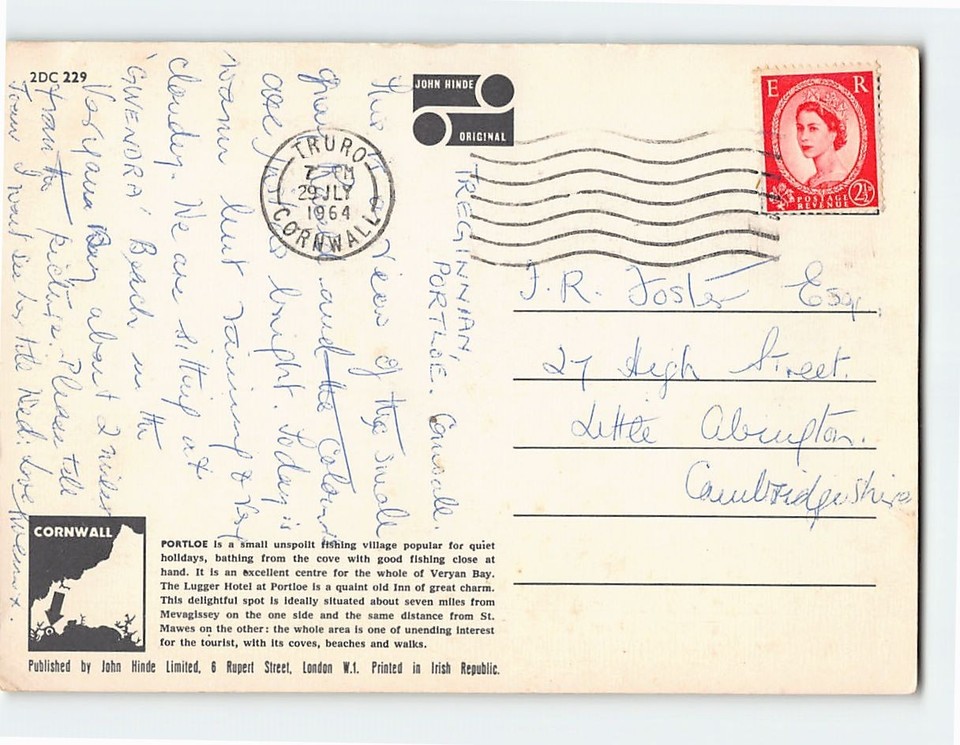 2DC 229
JOHN HINDE
ORIGINAL
TRURO
7 PM
29 JLY
1964
CORNWALL
E R
POSTAGE
REVENUE
2½
TREGINNIAN,
PORTLOE. Cornwall.
This View of the small
and the Colours
are bright. Today is
warm but raining & very
cloudy. We are sitting at
'GWENDRA' Beach in the
Veryan Bay about 2 miles
from the picture. Please tell
I wont see her till Wed. love
J.R. Foster Esq
27 High Street.
Little Abington.
Cambridgeshire
CORNWALL
PORTLOE is a small unspoilt fishing village popular for quiet
holidays, bathing from the cove with good fishing close at
hand. It is an excellent centre for the whole of Veryan Bay.
The Lugger Hotel at Portloe is a quaint old Inn of great charm.
This delightful spot is ideally situated about seven miles from
Mevagissey on the one side and the same distance from St.
Mawes on the other: the whole area is one of unending interest
for the tourist, with its coves, beaches and walks.
Published by John Hinde Limited, 6 Rupert Street, London W.1. Printed in Irish Republic.